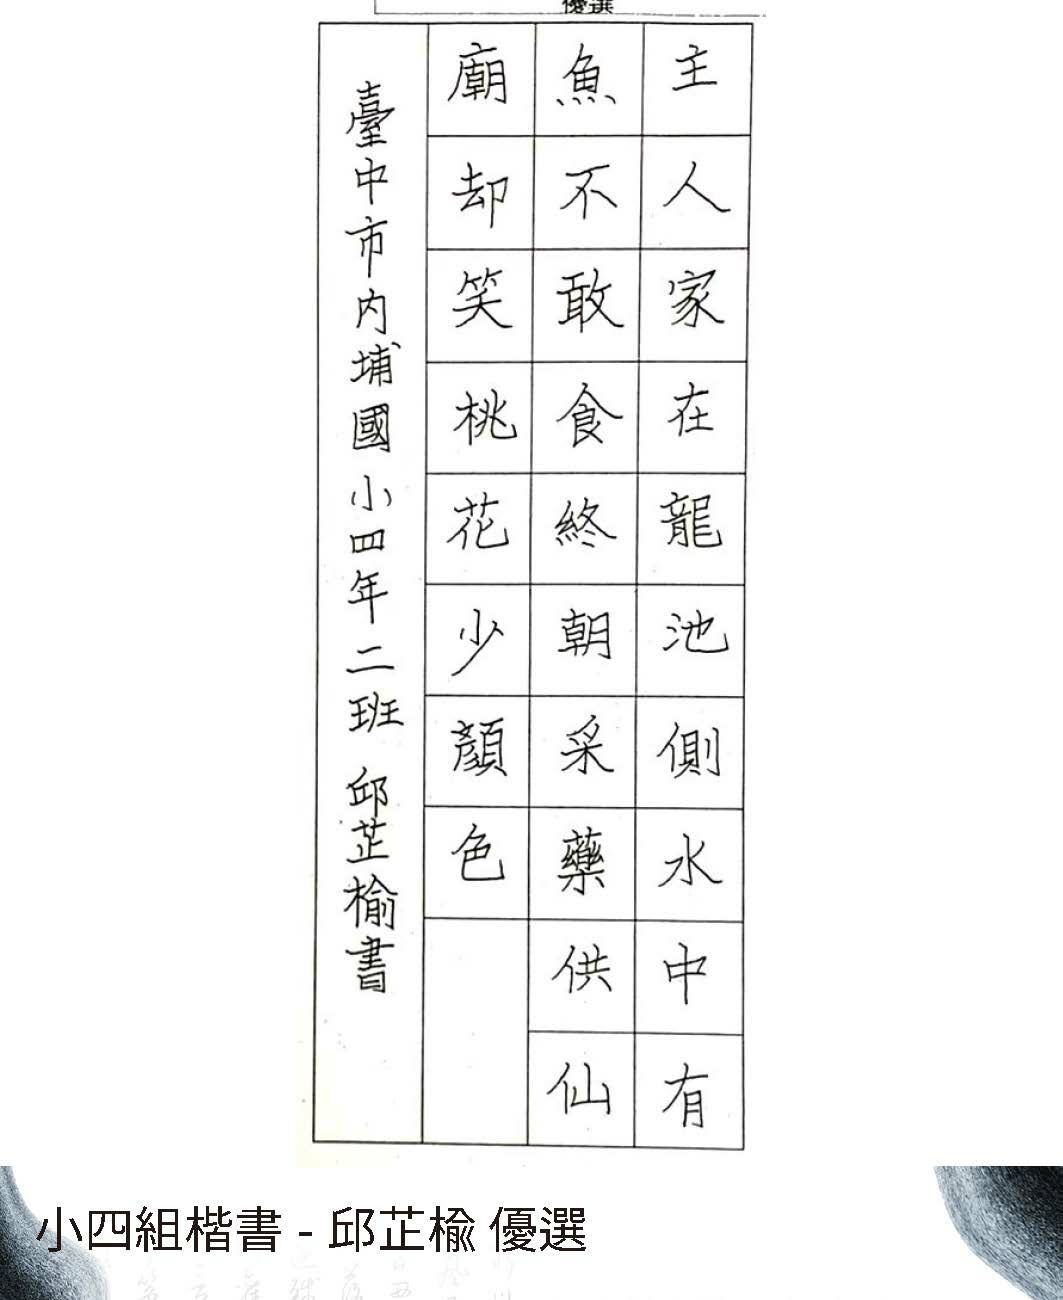 優選
主人家在龍池側水中有
魚不敢食終朝采藥供仙
廟却笑桃花少顏色
臺中市內埔國小四年二班 邱芷榆書
小四組楷書 - 邱芷榆 優選